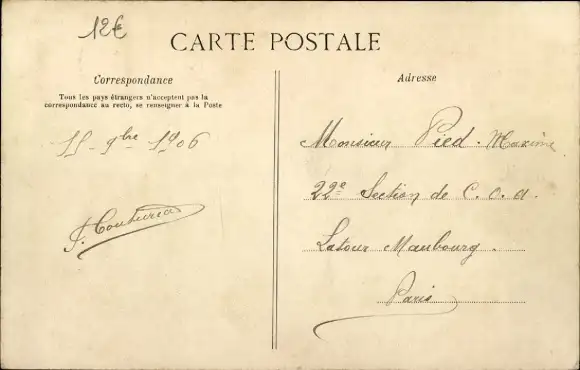 12€
CARTE POSTALE
Correspondance
Tous les pays étrangers n'acceptent pas la
correspondance au recto, se renseigner à la Poste
15 - 9bre 1906
Adresse
Monsieur Pied. Maxime
22e Section de C. O. A.
Latour Maubourg.
Paris